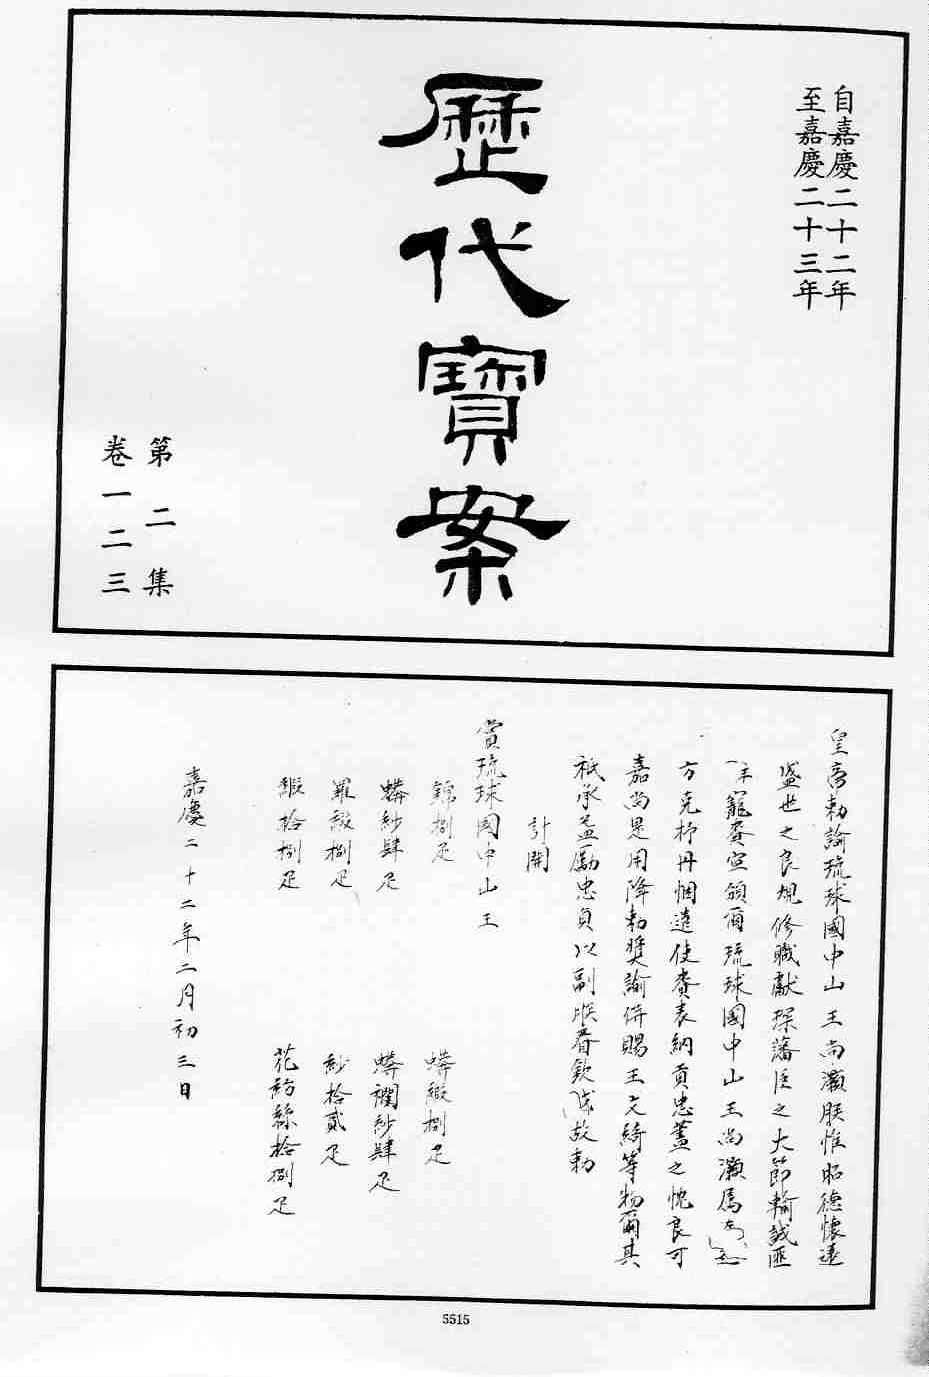 自嘉慶二十二年
至嘉慶二十三年
歷代寶案
第二集
卷一二三
皇帝勅諭琉球國中山王尚灝朕惟昭德懷遠
盛世之良規修職獻琛藩臣之大節輸誠匪
寵賚宣頒爾琉球國中山王尚灝屬
方克抒丹悃遣使賚表納貢忠藎之忱良可
嘉尚是用降勅獎諭併賜王文綺等物爾其
祇承益勵忠貞以副朕眷欽哉故勅
計開
賞琉球國中山王
錦捌疋 蟒緞捌疋
蟒紗肆疋 蟒襴紗肆疋
羅緞捌疋 紗拾貳疋
緞拾捌疋 花紡絲拾捌疋
嘉慶二十二年二月初三日
5515